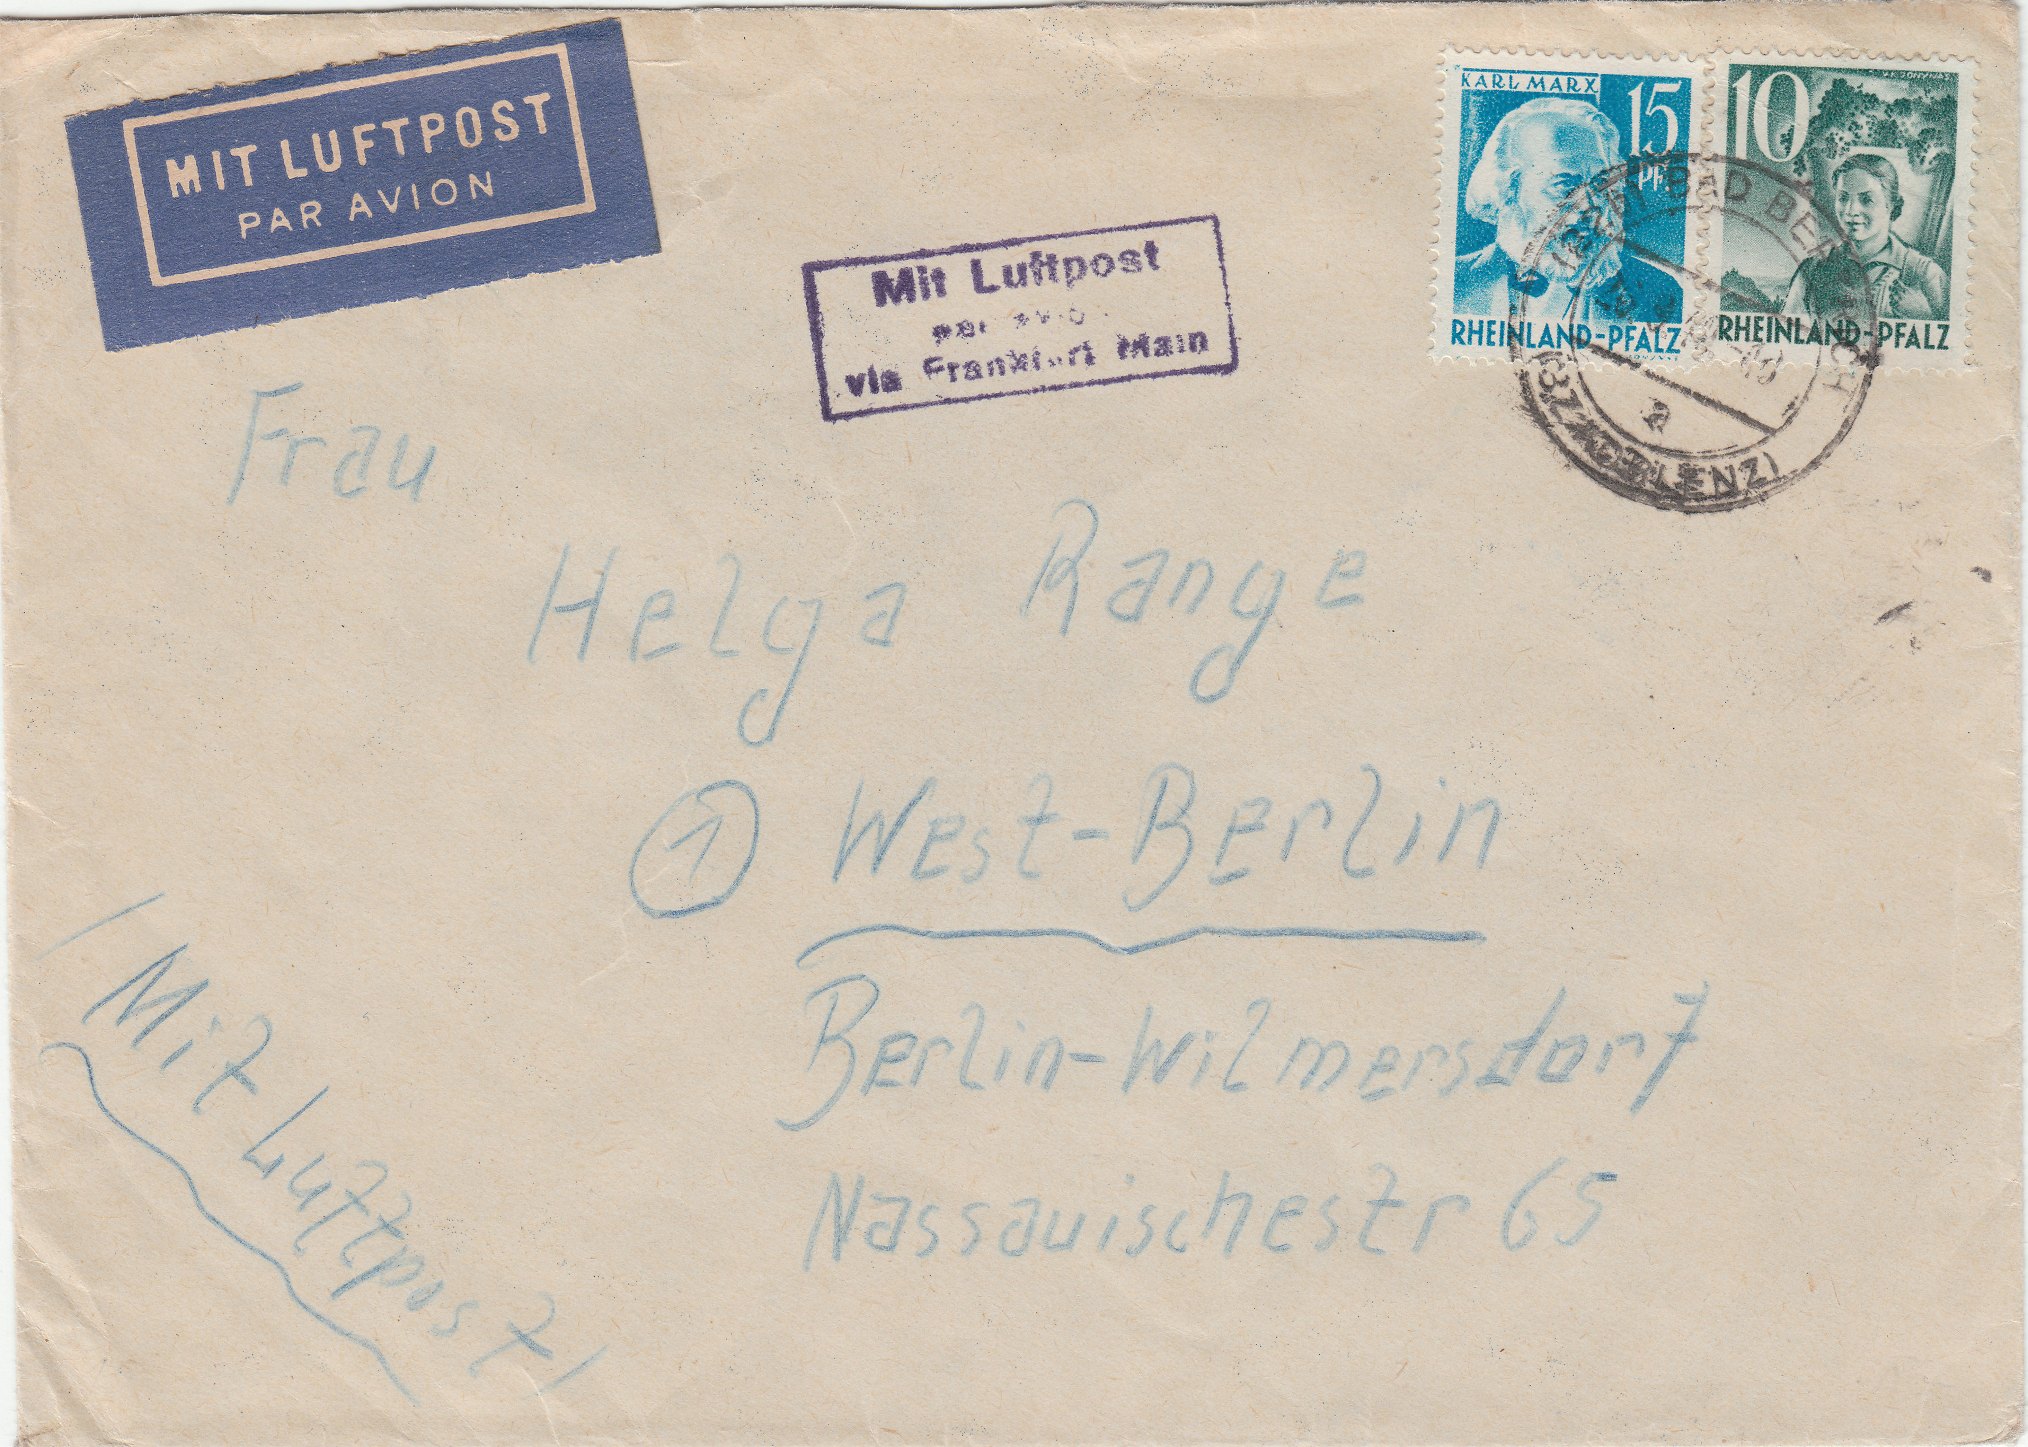 MIT LUFTPOST
PAR AVION
Mit Luftpost
par avio
via Frankfurt Main
KARL MARX
15
PF
RHEINLAND-PFALZ
10
RHEINLAND-PFALZ
BAD BERTRICH
a
Frau
Helga Range
1 West-Berlin
Berlin-Wilmersdorf
Nassauischestr 65
/Mit Luftpost/